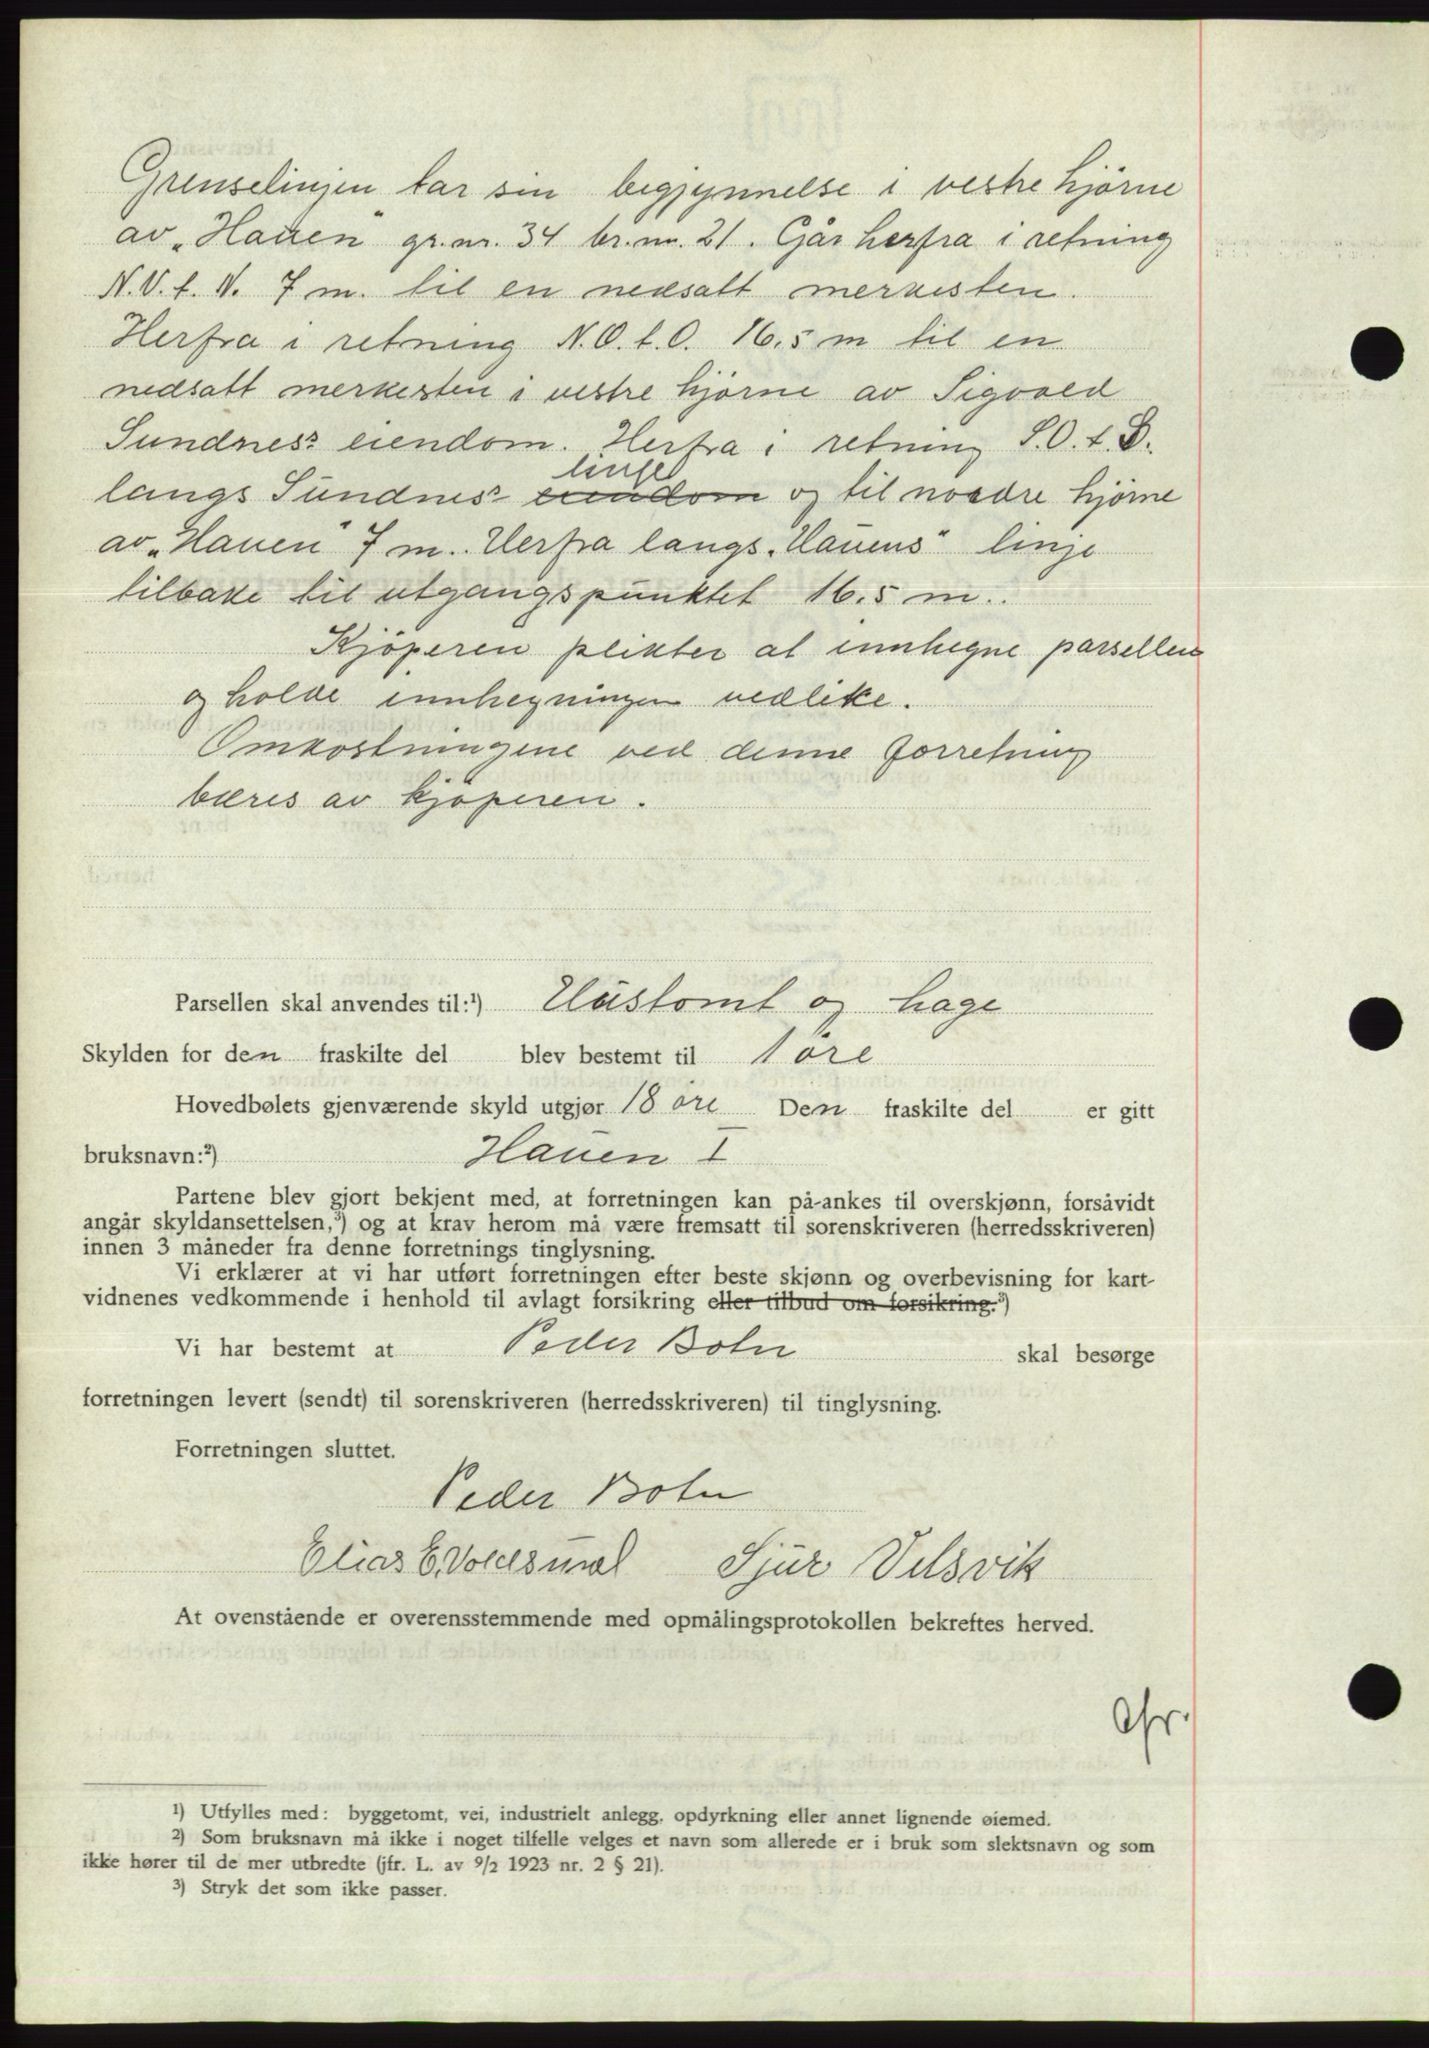 Grenselinjen tar sin begjynnelse i vestre hjørne
av „Hauen" gr.nr. 34 br.nr. 21. Går herfra i retning
N.V.t.N. 7 m. til en nedsatt merkesten.
Herfra i retning N.O.t.O. 16,5 m til en
nedsatt merkesten i vestre hjørne av Sigvald
Sundnes's eiendom. Herfra i retning S.O.t.S.
linje
langs Sundnes's eiendom og til nordre hjørne
av „Hauen" 7 m.. Herfra langs „Hauens" linje
tilbake til utgangspunktet 16,5 m..
Kjøperen plikter at innhegne parsellen
og holde innhegningen vedlike.
Omkostningene ved denne forretning
bæres av kjøperen.
Parsellen skal anvendes til:¹) Hustomt og hage
Skylden for den fraskilte del blev bestemt til 1 øre
Hovedbølets gjenværende skyld utgjør 18 øre Den fraskilte del er gitt
bruksnavn:²) Hauen I
Partene blev gjort bekjent med, at forretningen kan på-ankes til overskjønn, forsåvidt
angår skyldansettelsen,³) og at krav herom må være fremsatt til sorenskriveren (herredsskriveren)
innen 3 måneder fra denne forretnings tinglysning.
Vi erklærer at vi har utført forretningen efter beste skjønn og overbevisning for kart-
vidnenes vedkommende i henhold til avlagt forsikring eller tilbud om forsikring.³)
Vi har bestemt at Peder Botn skal besørge
forretningen levert (sendt) til sorenskriveren (herredsskriveren) til tinglysning.
Forretningen sluttet.
Peder Botn
Elias E. Voldsund Sjur Velsvik
At ovenstående er overensstemmende med opmålingsprotokollen bekreftes herved.
¹) Utfylles med: byggetomt, vei, industrielt anlegg, opdyrkning eller annet lignende øiemed.
²) Som bruksnavn må ikke i noget tilfelle velges et navn som allerede er i bruk som slektsnavn og som
ikke hører til de mer utbredte (jfr. L. av 9/2 1923 nr. 2 § 21).
³) Stryk det som ikke passer.